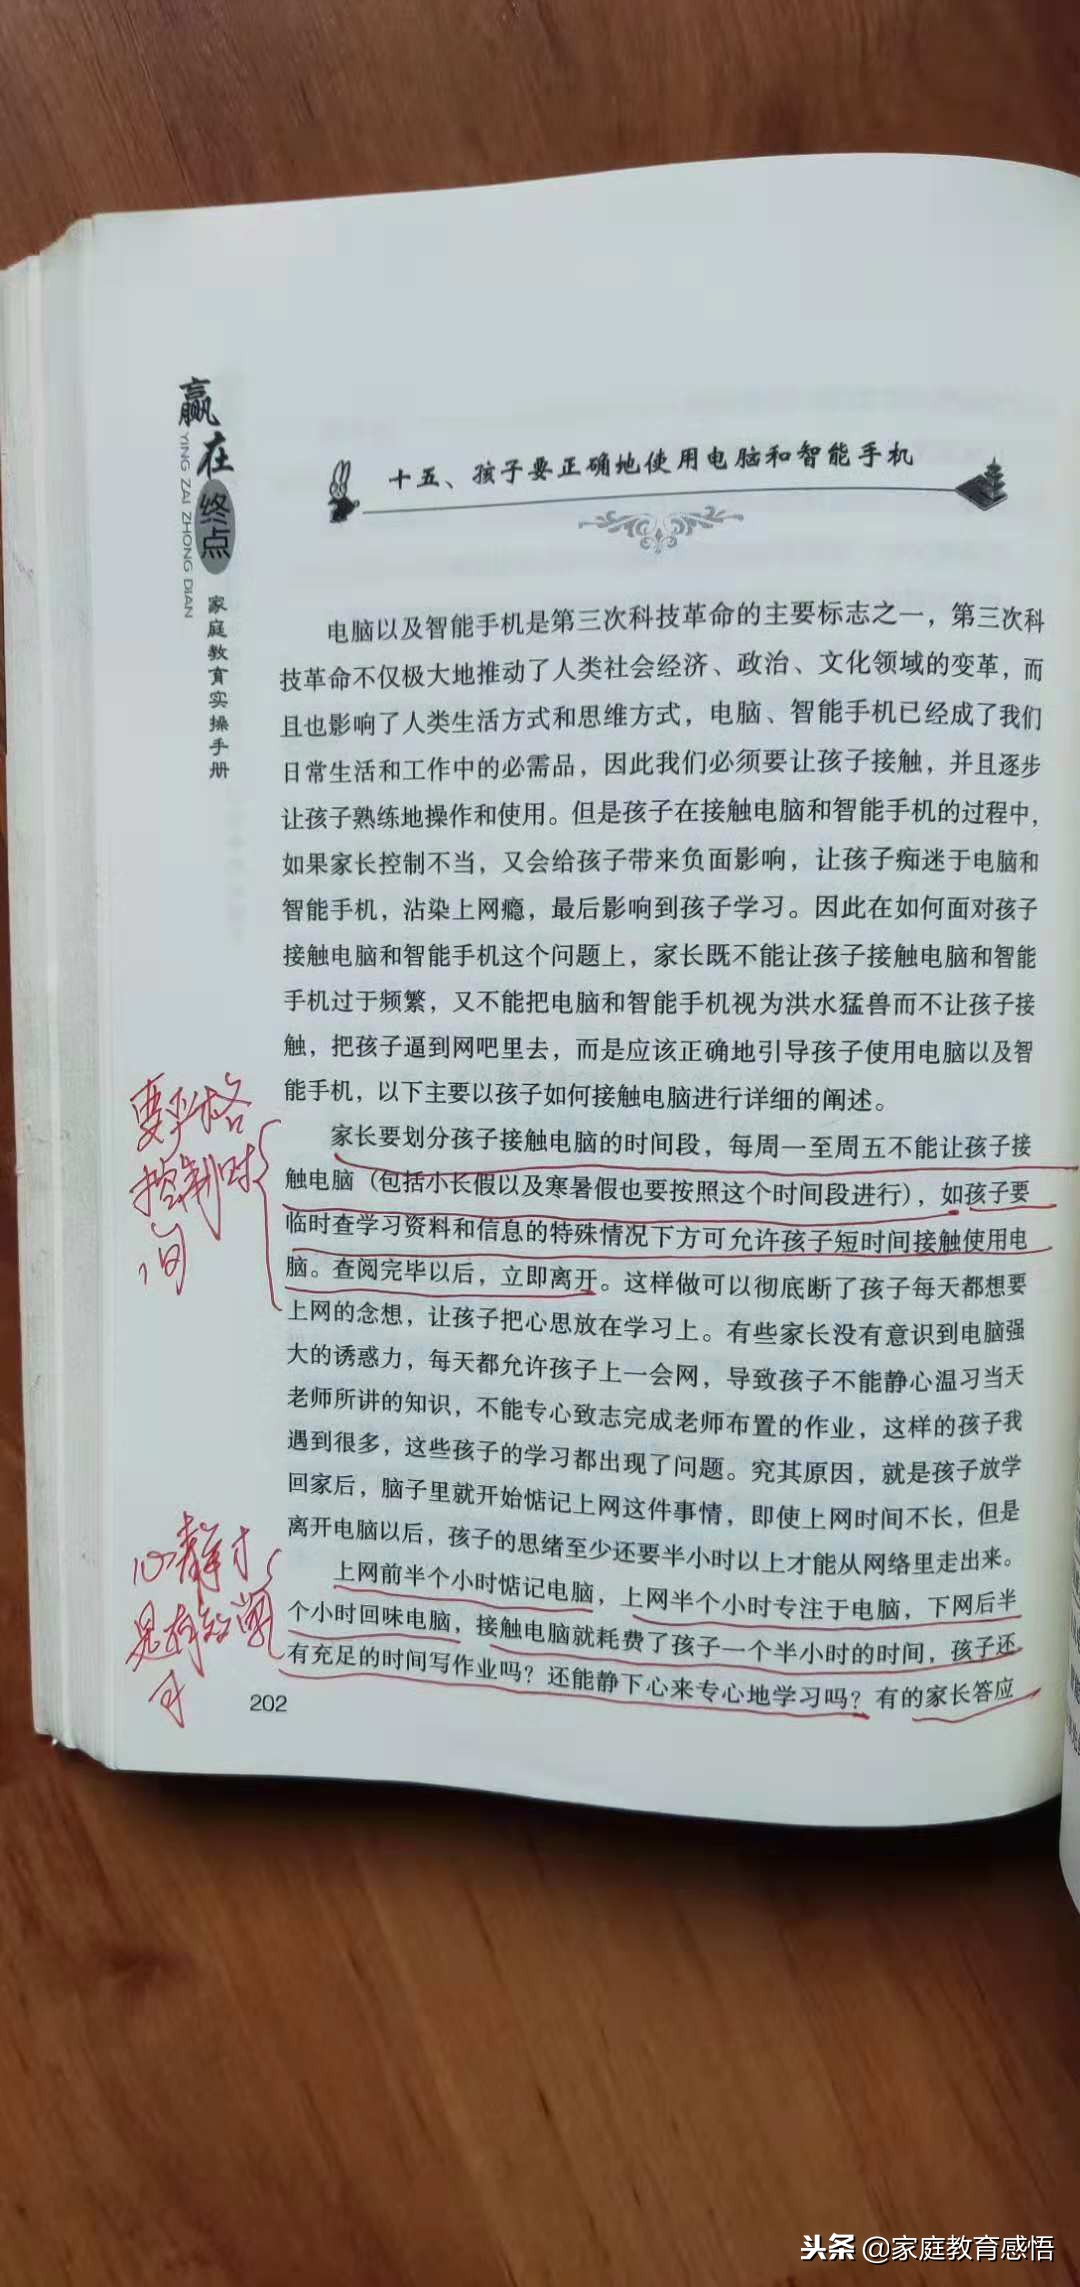 赢在终点
YING ZAI ZHONG DIAN
家庭教育实操手册
十五、孩子要正确地使用电脑和智能手机
电脑以及智能手机是第三次科技革命的主要标志之一，第三次科
技革命不仅极大地推动了人类社会经济、政治、文化领域的变革，而
且也影响了人类生活方式和思维方式，电脑、智能手机已经成了我们
日常生活和工作中的必需品，因此我们必须要让孩子接触，并且逐步
让孩子熟练地操作和使用。但是孩子在接触电脑和智能手机的过程中，
如果家长控制不当，又会给孩子带来负面影响，让孩子痴迷于电脑和
智能手机，沾染上网瘾，最后影响到孩子学习。因此在如何面对孩子
接触电脑和智能手机这个问题上，家长既不能让孩子接触电脑和智能
手机过于频繁，又不能把电脑和智能手机视为洪水猛兽而不让孩子接
触，把孩子逼到网吧里去，而是应该正确地引导孩子使用电脑以及智
能手机，以下主要以孩子如何接触电脑进行详细的阐述。
家长要划分孩子接触电脑的时间段，每周一至周五不能让孩子接
触电脑（包括小长假以及寒暑假也要按照这个时间段进行），如孩子要
临时查学习资料和信息的特殊情况下方可允许孩子短时间接触使用电
脑。查阅完毕以后，立即离开。这样做可以彻底断了孩子每天都想要
上网的念想，让孩子把心思放在学习上。有些家长没有意识到电脑强
大的诱惑力，每天都允许孩子上一会网，导致孩子不能静心温习当天
老师所讲的知识，不能专心致志完成老师布置的作业，这样的孩子我
遇到很多，这些孩子的学习都出现了问题。究其原因，就是孩子放学
回家后，脑子里就开始惦记上网这件事情，即使上网时间不长，但是
离开电脑以后，孩子的思绪至少还要半小时以上才能从网络里走出来。
上网前半个小时惦记电脑，上网半个小时专注于电脑，下网后半
个小时回味电脑，接触电脑就耗费了孩子一个半小时的时间，孩子还
有充足的时间写作业吗？还能静下心来专心地学习吗？有的家长答应
要严格
控制时
间
心静才
是有效学
习
202
头条 @家庭教育感悟